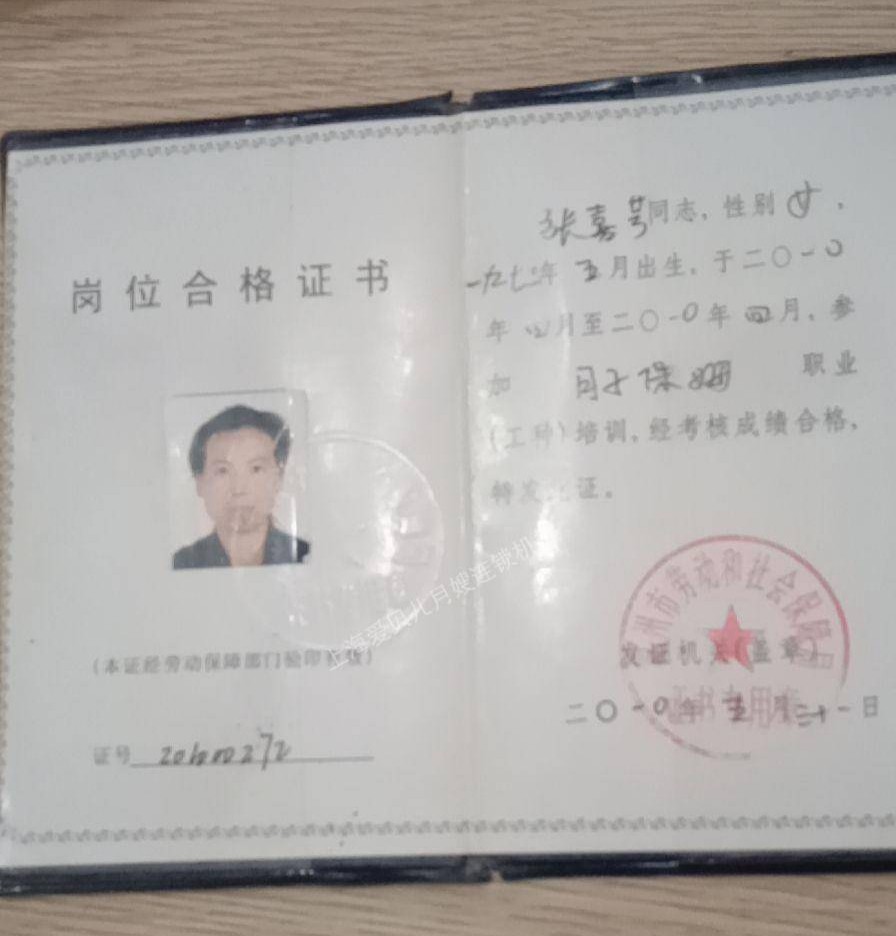 岗位合格证书
(本证经劳动保障部门验印有效)
证号
张嘉 同志，性别女，
一九七 年五月出生，于二〇一〇
年四月至二〇一〇年四月，参
加 月子保姆 职业
(工种)培训，经考核成绩合格，
特发此证。
州市劳动和社会保障局
发证机关(盖章)
证书专用章
二〇一〇年五月三十一日
上海爱贝儿月嫂连锁机